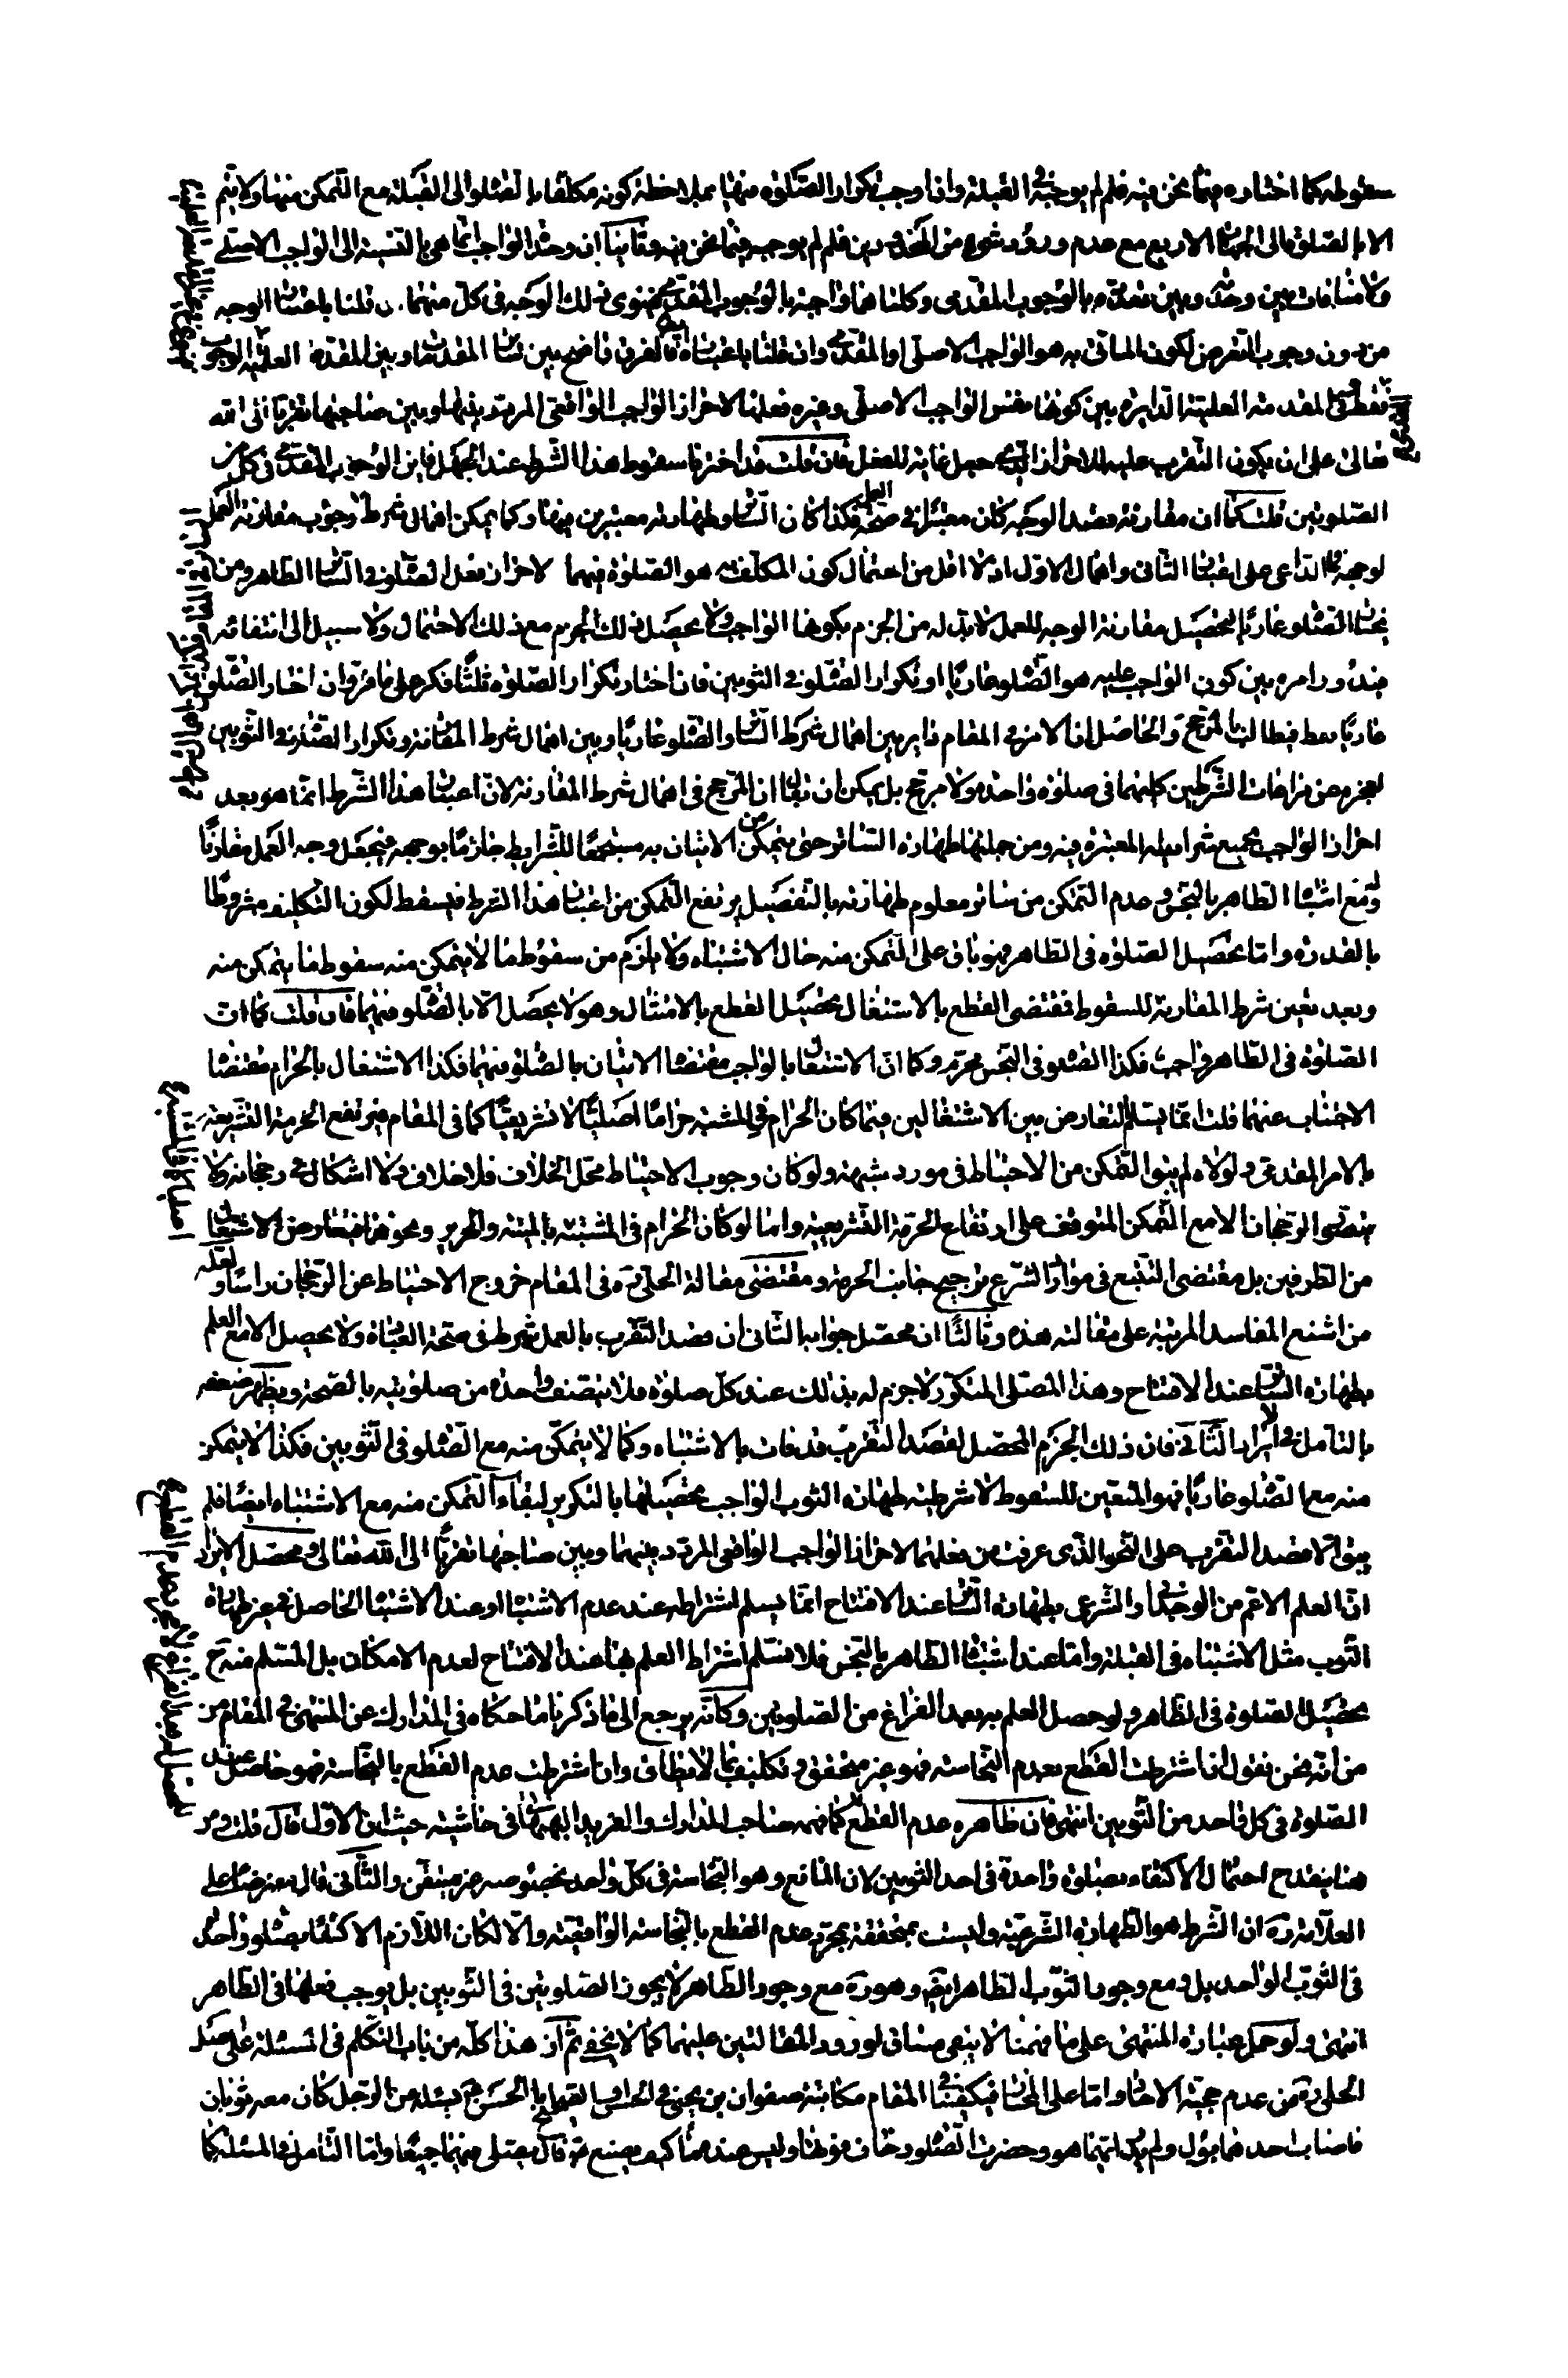 سقوطه كما اختاره فيما نحن فيه فلم لم يوجبه في القبلة وان اوجب تكرار الصلوة فيها بملاحظة كونه مكلفا بالصلوة الى القبلة مع التمكن منها ولا يتم
الا بالصلوة الى الجهات الاربع مع عدم ورود شيء من المحذورين فلم لم يوجبه فيما نحن فيه وثانيا ان وحدة الواجب انما هي بالنسبة الى الواجب الاصلي
ولا منافات بين وحدته وبين تعدده بالوجوب المقدمي وكلتاهما واجبة بالوجوب المقدمي فينوي ذلك الوجه في كل منهما ان قلنا باعتبار الوجه
من دون وجوب التعرض لكون الماتي به هو الواجب الاصلي او المقدمي وان قلنا باعتباره فالفرق واضح بين سائر المقدمات وبين المقدمة العلمية الوجوب
فقط في المقدمة العلمية الدايرة بين كونها نفس الواجب الاصلي وغيره فعلها لاحراز الواجب الواقعي المردد بينها وبين صاحبها تقربا الى الله
تعالى على ان يكون التقرب عليه للاحراز الذي جعل غاية للفعل فان قلت قد اخترنا سقوط هذا الشرط عند الجهل فاين الوجوب المقدمي في كل من
الصلوتين قلت كما ان مقارنة قصد الوجه كان معتبرا في صحة العمل فكذا كان الساتر وطهارته معتبرين فيها وكما يمكن اهمال شرط وجوب مقارنة العمل
لوجهه الداعي على اعتبار الثاني واهمال الاول اذ لا اقل من احتمال كون المكلف به هو الصلوة فيهما لاحراز فعل الصلوة في الساتر الطاهر ومن
يختار الصلوة عاريا لتحصيل مقارنة الوجه للعمل لا بد له من الجزم بكونها الواجب ولا يحصل ذلك الجزم مع ذلك الاحتمال ولا سبيل الى انتفائه
فيدور امره بين كون الواجب عليه هو الصلوة عاريا او تكرار الصلوة في الثوبين فان اختار تكرار الصلوة قلنا فكر على ما فر وان اختار الصلوة
عاريا فقط فيطالب بالمرجح والحاصل ان الامر في المقام داير بين اهمال شرط الساتر والصلوة عاريا وبين اهمال شرط المقارنة وتكرار الصلوة في الثوبين
لعجزه عن مراعات الشرطين كليهما في صلوة واحدة ولا مرجح بل يمكن ان يقال ان المرجح في اهمال شرط المقارنة لان اعتبار هذا الشرط انما هو بعد
احراز الواجب بجميع شرايطه المعتبرة فيه ومن جملتها طهارة الساتر حتى يتمكن من الاتيان به مستجمعا للشرايط جازما بوجهه فيجعل وجه العمل مقارنا
له ومع اشتباه الطاهر بالنجس وعدم التمكن من ساتر معلوم طهارته بالتفصيل يرتفع التمكن من اعتبار هذا الشرط فيسقط لكون التكليف مشروطا
بالقدرة واما تحصيل الصلوة في الطاهر فهو باق على التمكن منه حال الاشتباه ولا يلزم من سقوط ما لا يتمكن منه سقوط ما يتمكن منه
وبعد تعين شرط المقارنة للسقوط فمقتضى القطع بالاشتغال تحصيل القطع بالامتثال وهو لا يحصل الا بالصلوة فيهما فان قلت كما ان
الصلوة في الطاهر واجب فكذا الصلوة في النجس محرم وكما ان الاشتغال بالواجب مقتضاه الاتيان بالصلوة فيهما فكذا الاشتغال بالحرام مقتضاه
الاجتناب عنهما قلت انما يسلم التعارض بين الاشتغالين فيما كان الحرام في المشتبه حراما اصليا لا تشريعيا كما في المقام فيرتفع الحرمة التشريعية
بالامر المقدمي ولولاه لم يبق التمكن من الاحتياط في مورد شبهة ولو كان وجوب الاحتياط محل الخلاف فلا خلاف ولا اشكال في رجحانه ولا
يتصور الرجحان الا مع التمكن المتوقف على ارتفاع الحرمة التشريعية واما لو كان الحرام في المشتبه بالميتة والحرير ونحوهما فيتعارض الاشتغال
من الطرفين بل مقتضى التتبع في موارد الشرع ترجيح جانب الحرمة ومقتضى مقالة الحلي ره في المقام خروج الاحتياط عن الرجحان راسا ولعله
من اشنع المفاسد المرتبة على مقالته هذه وثالثا ان محصل جوابه الثاني ان قصد التقرب بالعمل شرط في صحة العبادة ولا يحصل الا مع العلم
بطهارة الثياب عند الافتتاح وهذا المصلي المتكرر لا جزم له بذلك عند كل صلوة فلا يتصف واحدة من صلوتيه بالصحة ويظهر ضعفه
بالتامل في الايراد الثاني فان ذلك الجزم المحصل لقصد التقرب قد فات بالاشتباه وكما لا يتمكن منه مع الصلوة في الثوبين فكذا لا يتمكن
منه مع الصلوة عاريا فهو المتعين للسقوط لا شرطية طهارة الثوب الواجب تحصيلها بالتكرير لبقاء التمكن منه مع الاشتباه ايضا فلم
يبق الا قصد التقرب على النحو الذي عرفت من فعلهما لاحراز الواجب الواقعي المردد بينهما وبين صاحبها تقربا الى الله تعالى ومحصل الايراد
ان العلم الاعم من الوجداني والشرعي بطهارة الساتر عند الافتتاح انما يسلم اشتراطه عند عدم الاشتباه او عند الاشتباه الحاصل في غير طهارة
الثوب مثل الاشتباه في القبلة واما عند اشتباه الطاهر بالنجس فلا نسلم اشتراط العلم بها عند الافتتاح لعدم الامكان بل المسلم منه ح
تحصيل الصلوة في الطاهر ولو حصل العلم به بعد الفراغ من الصلوتين وكانه يرجع الى ما ذكرنا ما حكاه في المدارك عن المنتهى في المقام من
من انه نحن نقول ان اشترطت القطع بعدم النجاسة فهو غير متحقق وتكليف بما لا يطاق وان اشترطت عدم القطع بالنجاسة فهو حاصل عند
الصلوة في كل واحد من الثوبين انتهى فان ظاهره عدم القطع لا كما فهمه صاحب المدارك والفريد البهبهاني في حاشيته حيث ان الاول قال قلت ومن
هنا ينقدح احتمال الاكتفاء بصلوة واحدة في احد الثوبين لان المانع وهو النجاسة في كل واحد بخصوصه غير متيقن والثاني قال معترضا على
العلامة ره ان الشرط هو الطهارة الشرعية وليست بمتحققة بمجرد عدم القطع بالنجاسة الواقعية والا لكان اللازم الاكتفاء بصلوة واحدة
في الثوب الواحد بل ومع وجود الثوب الطاهر ايضا وهو ره مع وجود الطاهر لا يجوز الصلوتين في الثوبين بل يوجب فعلها في الطاهر
انتهى ولو حمل عبارة المنتهى على ما فهمنا لا يبقى مساق لورود المقالتين عليهما كما لا يخفى ثم ان هذا كله من باب التكلم في المسئلة على مسلك
الحلي ره من عدم حجية الاحاد واما على المختار فيكفينا في المقام مكاتبة صفوان بن يحيى في الحسن الى ابي الحسن ع يسئله عن الرجل كان معه ثوبان
فاصاب احدهما بول ولم يدر ايهما هو وحضرت الصلوة وخاف فوتها وليس عنده ماء كيف يصنع قال يصلي فيهما جميعا واما التامل في المسئلة كما